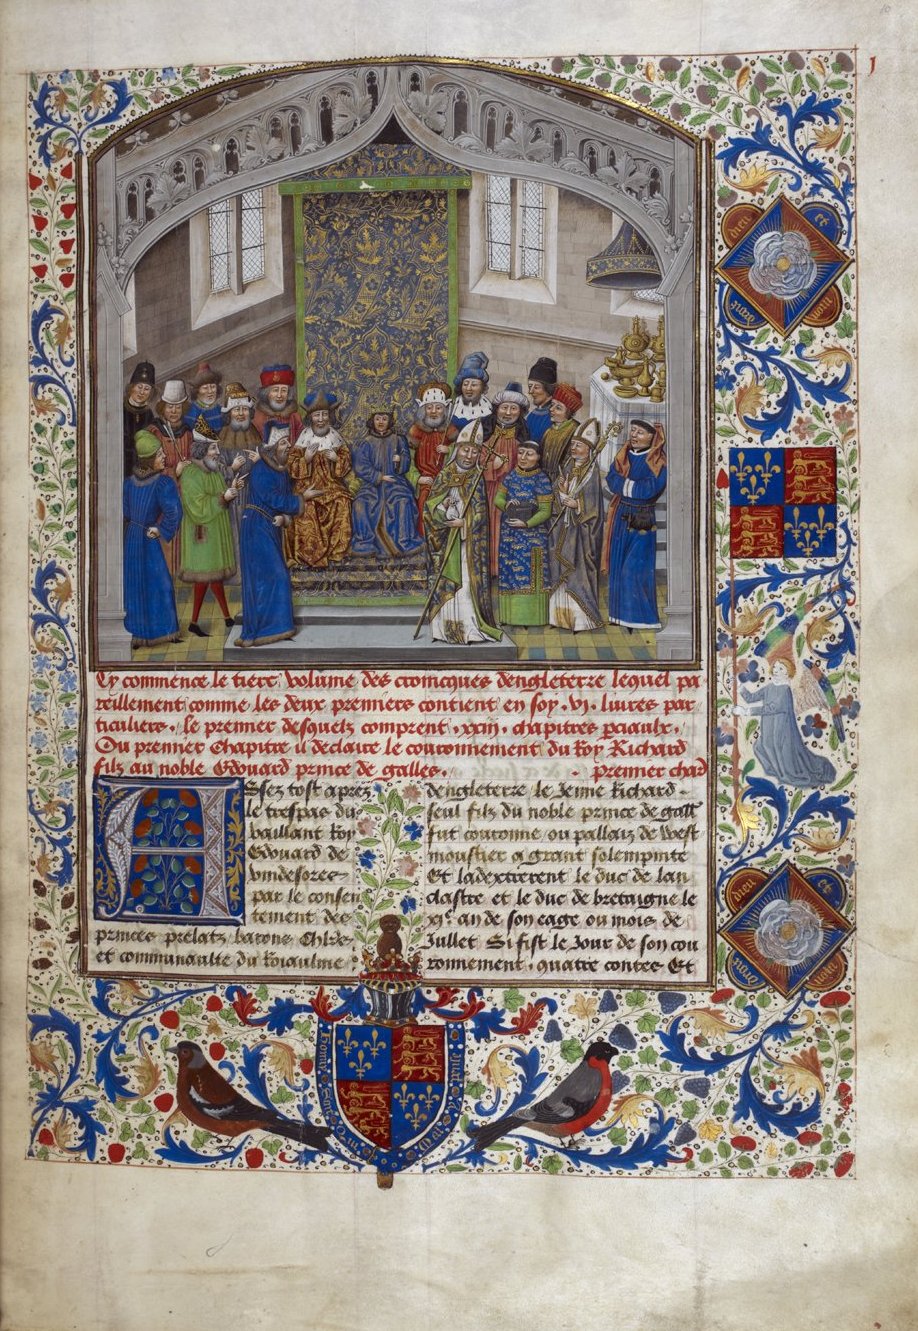 Cy commence le tierc volume des croniques dengleterre lequel pa
reillement comme les deux premiers contient en soy .vj. livres par
ticuliers . le premier desquelz comprent . xxij . chapitres
Du premier chapitre il declaire le couronnement du Roy Richard
filz au noble Edouard prince de galles . premier chap
Assez tost apres
le trespas du
vaillant Roy
Edouard de
vindesores
par le consen
tement des
princes prelatz barons Chlrs
et communaulte du Royaulme
dengleterre le Jenne Richard
seul filz du noble prince de gall
fut couronne ou pallais de west
moustier a grant solempnite
Et ladextrerent le duc de lan
clastre et le duc de bretaigne le
xje. an de son eage ou mois de
Jullet Si fist le Jour de son cou
ronnement . quatre contes Et
dieu et
mon
dieu et